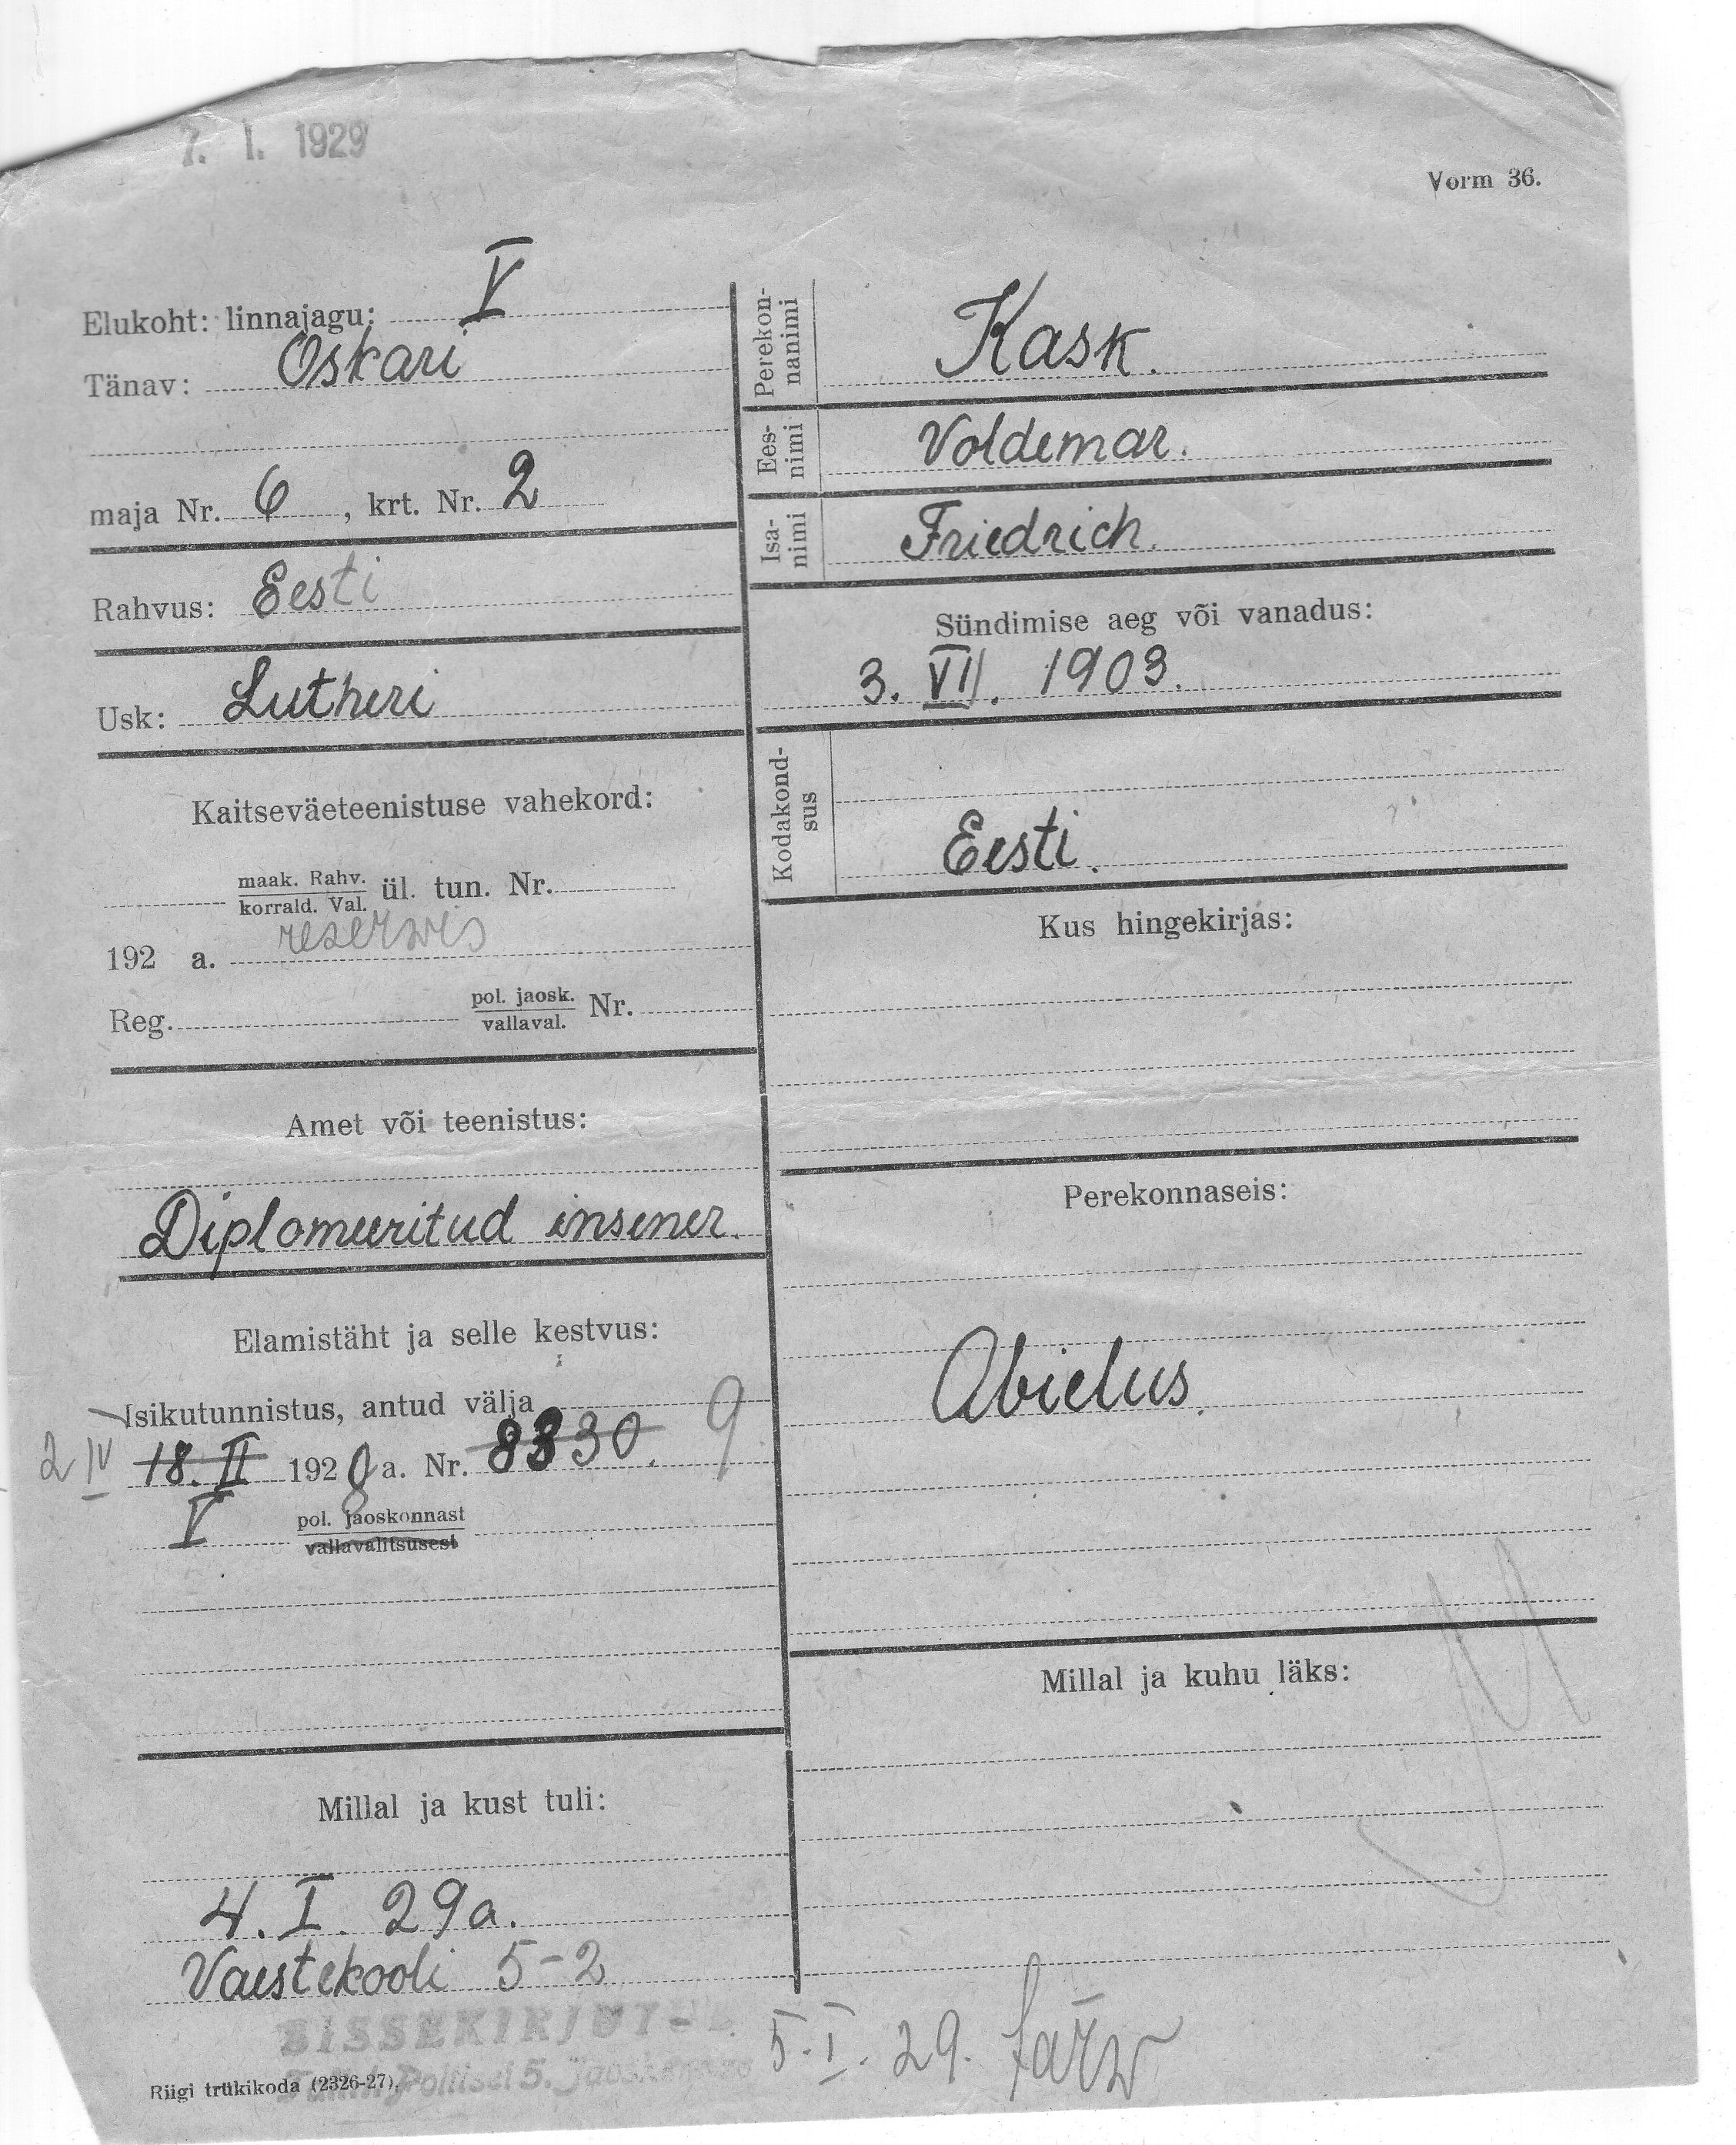 7. I. 1929
Vorm 36.
Elukoht: linnajagu: V
Tänav: Oskari
maja Nr. 6, krt. Nr. 2
Rahvus: Eesti
Usk: Lutheri
Kaitseväeteenistuse vahekord:
maak. Rahv.
korrald. Val. ül. tun. Nr.
192 a. reserwis
Reg. pol. jaosk.
vallaval. Nr.
Amet või teenistus:
Diplomeeritud insener.
Elamistäht ja selle kestvus:
Isikutunnistus, antud välja
2 IV 18. II 192 a. Nr. 8330. 9
V pol. jaoskonnast
vallavalitsusest
Millal ja kust tuli:
4. I. 29a.
Vaestekooli 5-2
SISSEKIRJUT
Politsei 5. jaoskonnas
Riigi trükikoda (2326-27).
Perekon-
nanimi
Kask.
Ees-
nimi
Voldemar.
Isa-
nimi
Friedrich.
Sündimise aeg või vanadus:
3. VII. 1903.
Kodakond-
sus
Eesti.
Kus hingekirjas:
Perekonnaseis:
Abielus.
Millal ja kuhu läks:
5. I. 29.